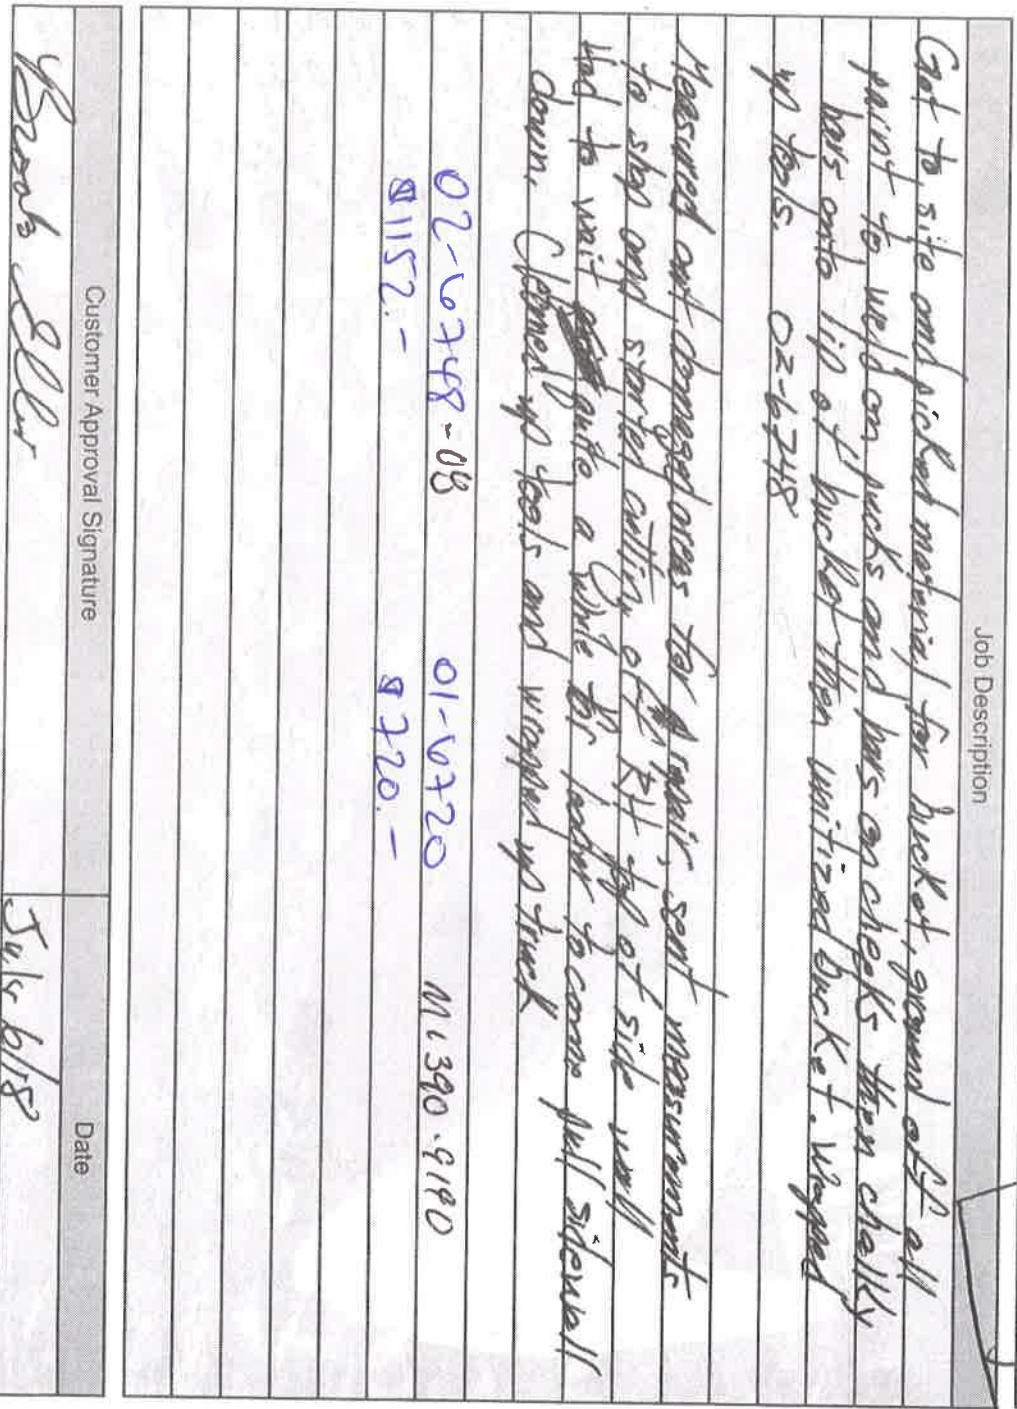 Job Description
Got to site and picked material for bucket, ground off all
paint to weld on pucks and bars on cheeks then chalky
bars onto lip of bucket then unitized bucket. Wrapped
up tools. 02-6748
Measured out damaged areas for repair, sent measurements
to shop and started cutting off RH top of side wall
Had to wait quite a while for loader to come pull sidewall
down, Cleaned up tools and wrapped up truck
02-6748-08 01-6720 M6390.9190
$1152.- $720.-
Customer Approval Signature Date
July 6/18